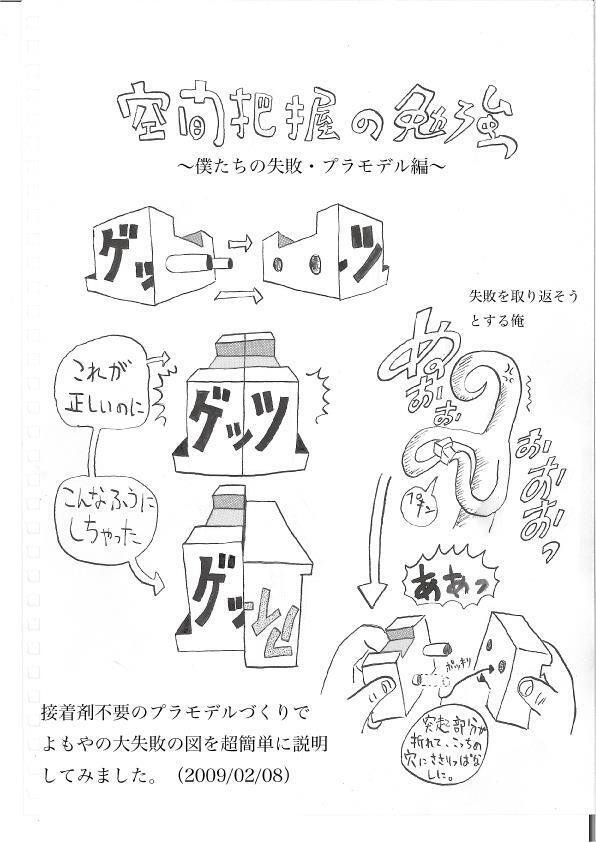 空間把握の勉強
～僕たちの失敗・プラモデル編～
ゲッ
ッツ
失敗を取り返そう
とする俺
これが
正しいのに
ゲッツ
こんなふうに
しちゃった
ゲッ
おぉ
おぉ
おおおおっ
ああっ
ポッキリ
突起部分が
折れて、こっちの
穴にささりっぱな
しに。
接着剤不要のプラモデルづくりで
よもやの大失敗の図を超簡単に説明
してみました。（2009/02/08）